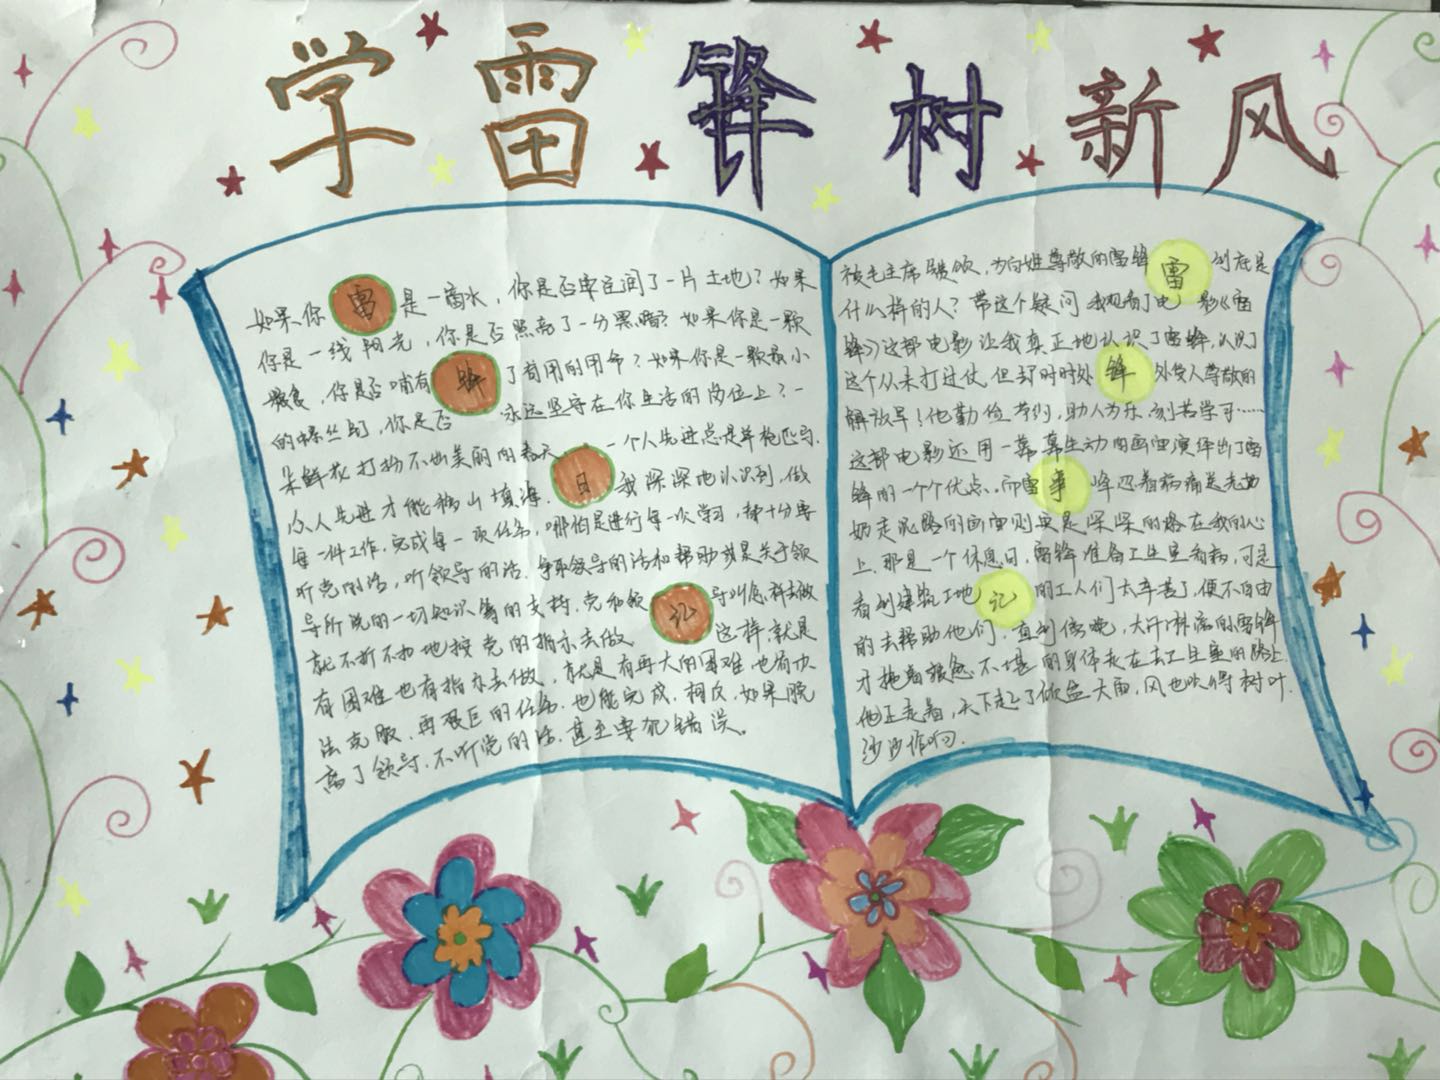 学雷锋树新风
如果你 雷 是一滴水，你是否滋润了一片土地？如果
你是一线阳光，你是否照亮了一分黑暗？如果你是一颗
粮食，你是否哺育 锋 了有用的用命？如果你是一颗最小
的螺丝钉，你是否 永远坚守在你生活的岗位上？一
朵鲜花打扮不出美丽的春天，一个人先进总是单枪匹马，
众人先进才能移山填海。 日 我深深地认识到，做
每一件工作，完成每一项任务，哪怕是进行每一次学习，都十分要
听党的话，听领导的话，争取领导的话和帮助 是关于领
导所说的一切知识 的支持。党和领 记 导叫怎样去做
就不折不扣地按党的指示去做 这样，就是
有困难也有指示去做，就是有再大的困难也有办
法克服，再艰巨的任务，也能完成，相反，如果脱
离了领导，不听党的话，甚至要犯错误。
被毛主席 颂，为 姓尊敬的雷锋 雷 到底是
什么样的人？带这个疑问 我观看了电 影《雷
锋》这部电影让我真正地认识了雷锋，认识了
这个从未打过仗，但却时时处 锋 处受人尊敬的
解放军！他勤俭节约，助人为乐，刻苦学习……
这部电影还用一幕幕生动的画面演绎出了雷
锋的一个个优点。而雷 事 峰忍着病痛送老奶
奶走泥路的画面则更是深深的烙在我的心
上，那是一个休息日，雷锋准备卫生室看病，可是
看到建筑工地 记 的工人们太辛苦了，便不自由
的去帮助他们，直到傍晚，大汗淋漓的雷锋
才拖着疲惫不堪的身体走在去卫生室的路上
他正走着，天下起了倾盆大雨，风也吹得树叶
沙沙作响。